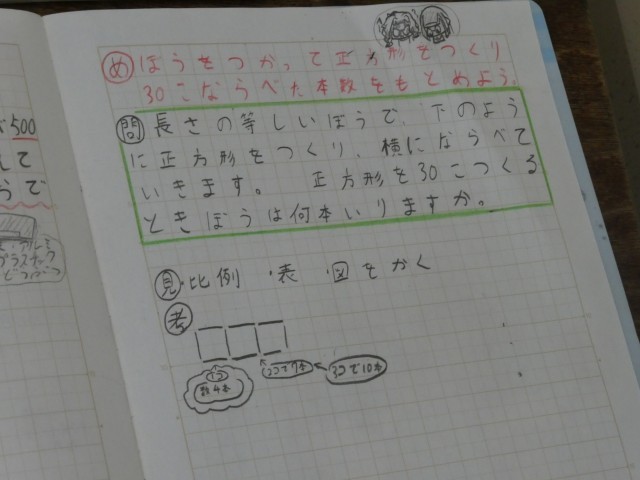 め ぼうをつかって正方形をつくり
30こならべた本数をもとめよう。
問 長さの等しいぼうで、下のよう
に正方形をつくり、横にならべて
いきます。 正方形を30こつくる
ときぼうは何本いりますか。
見・比例 ・表 ・図をかく
考
1こ
2こで7本 3こで10本
4本
500
て
うで
プラスチック